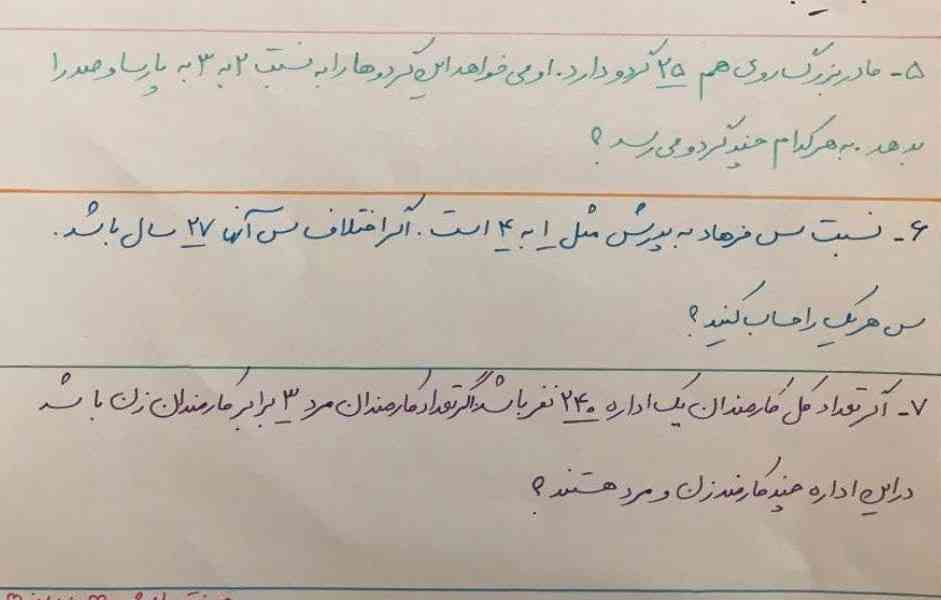 ۵- مادربزرگ روی هم ۲۵ گردو دارد. او می خواهد این گردوها را به نسبت ۲ به ۳ به پارسا و صدرا
بدهد. به هر کدام چند گردو می رسد؟
۶- نسبت سن فرهاد به پدرش مثل ۱ به ۴ است. اگر اختلاف سن آنها ۲۷ سال باشد.
سن هر یک را حساب کنید؟
۷- اگر تعداد کل کارمندان یک اداره ۲۴۰ نفر باشد اگر تعداد کارمندان مرد ۳ برابر کارمندان زن باشد
در این اداره چند کارمند زن و مرد هستند؟